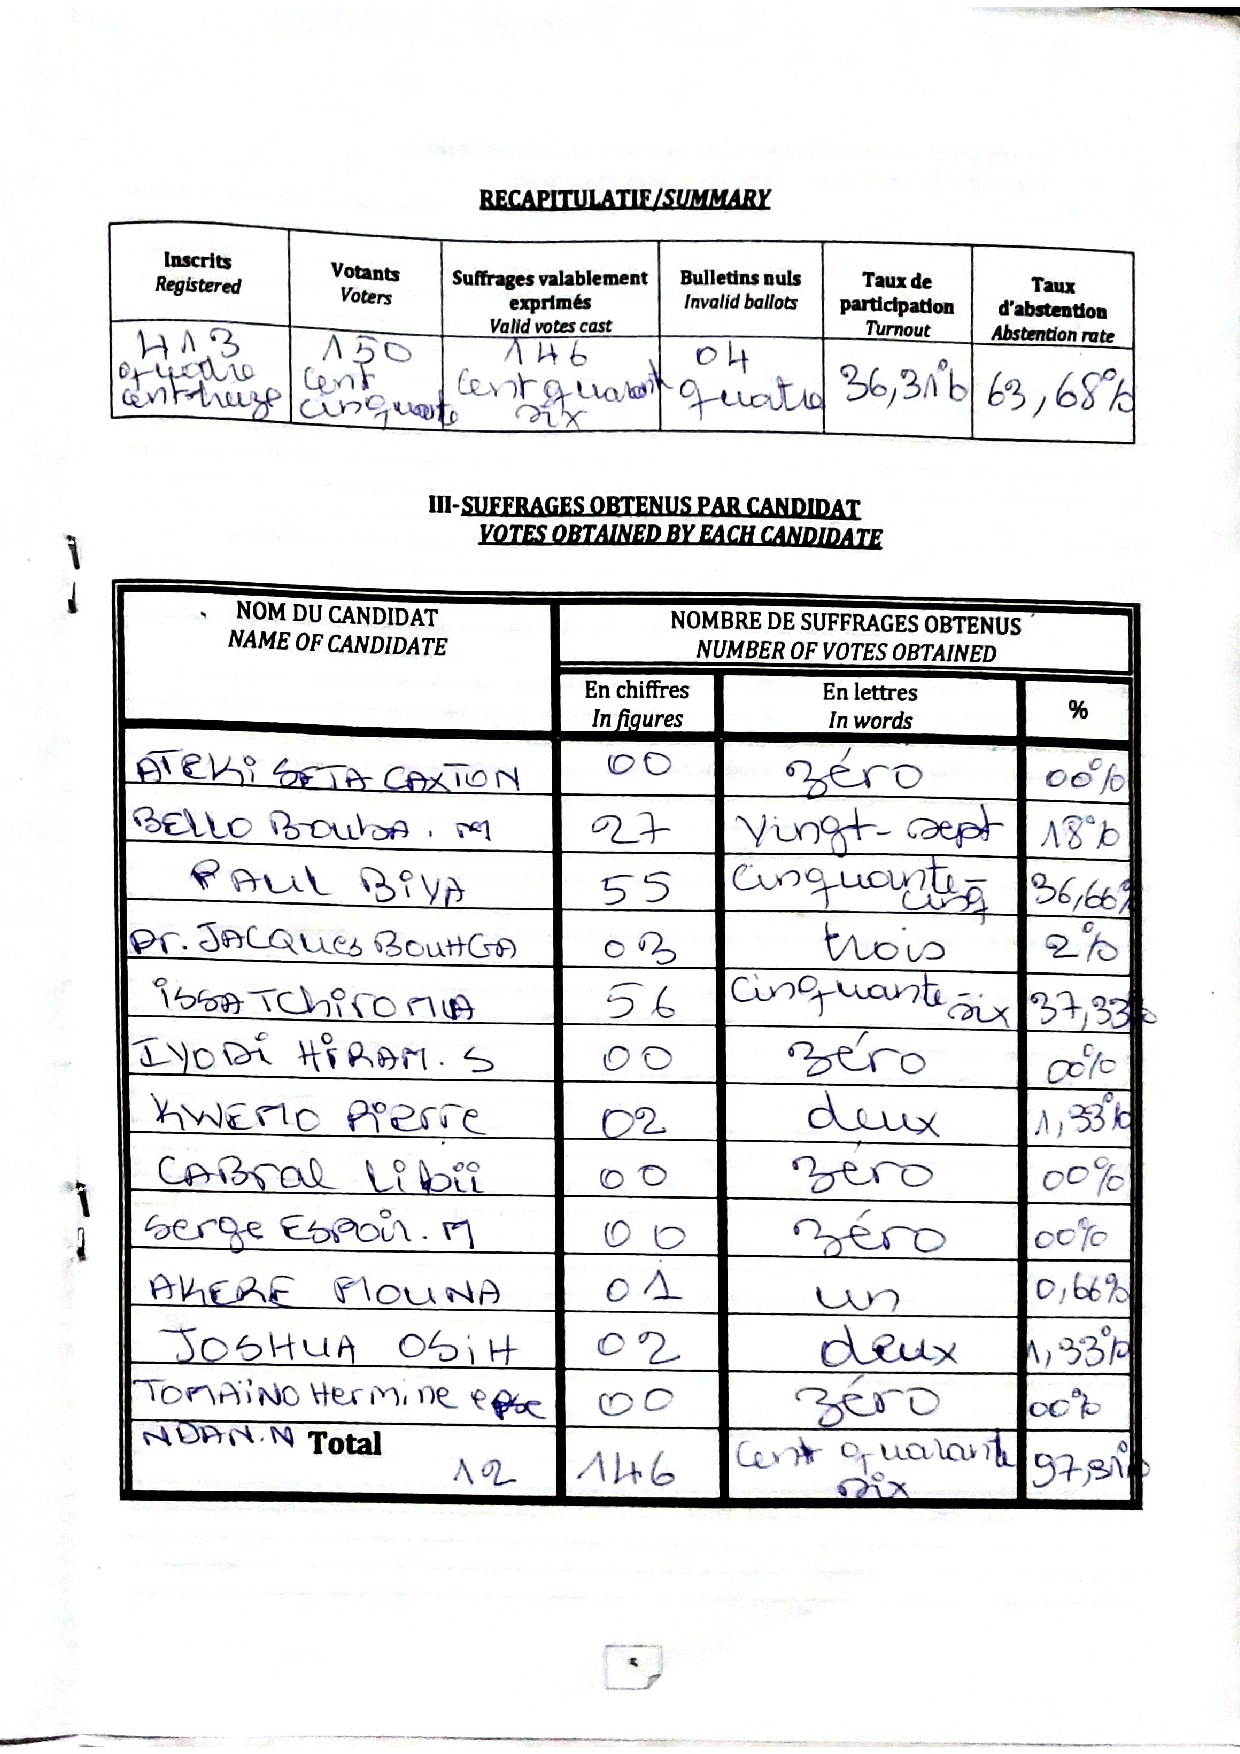 RECAPITULATIF/SUMMARY
Inscrits
Registered
Votants
Voters
Suffrages valablement
exprimés
Valid votes cast
Bulletins nuls
Invalid ballots
Taux de
participation
Turnout
Taux
d'abstention
Abstention rate
413
quatre
cent-treize
150
cent
cinquante
146
cent quarante
six
04
quatre
36,31%
63,68%
III-SUFFRAGES OBTENUS PAR CANDIDAT
VOTES OBTAINED BY EACH CANDIDATE
NOM DU CANDIDAT
NAME OF CANDIDATE
NOMBRE DE SUFFRAGES OBTENUS
NUMBER OF VOTES OBTAINED
En chiffres
In figures
En lettres
In words
%
ATEKI SETA CAXTON 00 zéro 00%
BELLO Bouba. M 27 Vingt-sept 18%
PAUL BIYA 55 cinquante-cinq 36,66%
Pr. JACQUES BOUHGA 03 trois 2%
ISSA TCHIROMA 56 cinquante-six 37,33%
IYODI HIRAM. S 00 zéro 00%
KWEMO Pierre 02 deux 1,33%
CABral Libii 00 zéro 00%
Serge ESPOIR. M 00 zéro 00%
AKERE MOUNA 01 un 0,66%
JOSHUA OSIH 02 deux 1,33%
TOMAÏNO Hermine epse 00 zéro 00%
NDAN.N Total 12 146 Cent quarante six 97,31%
5